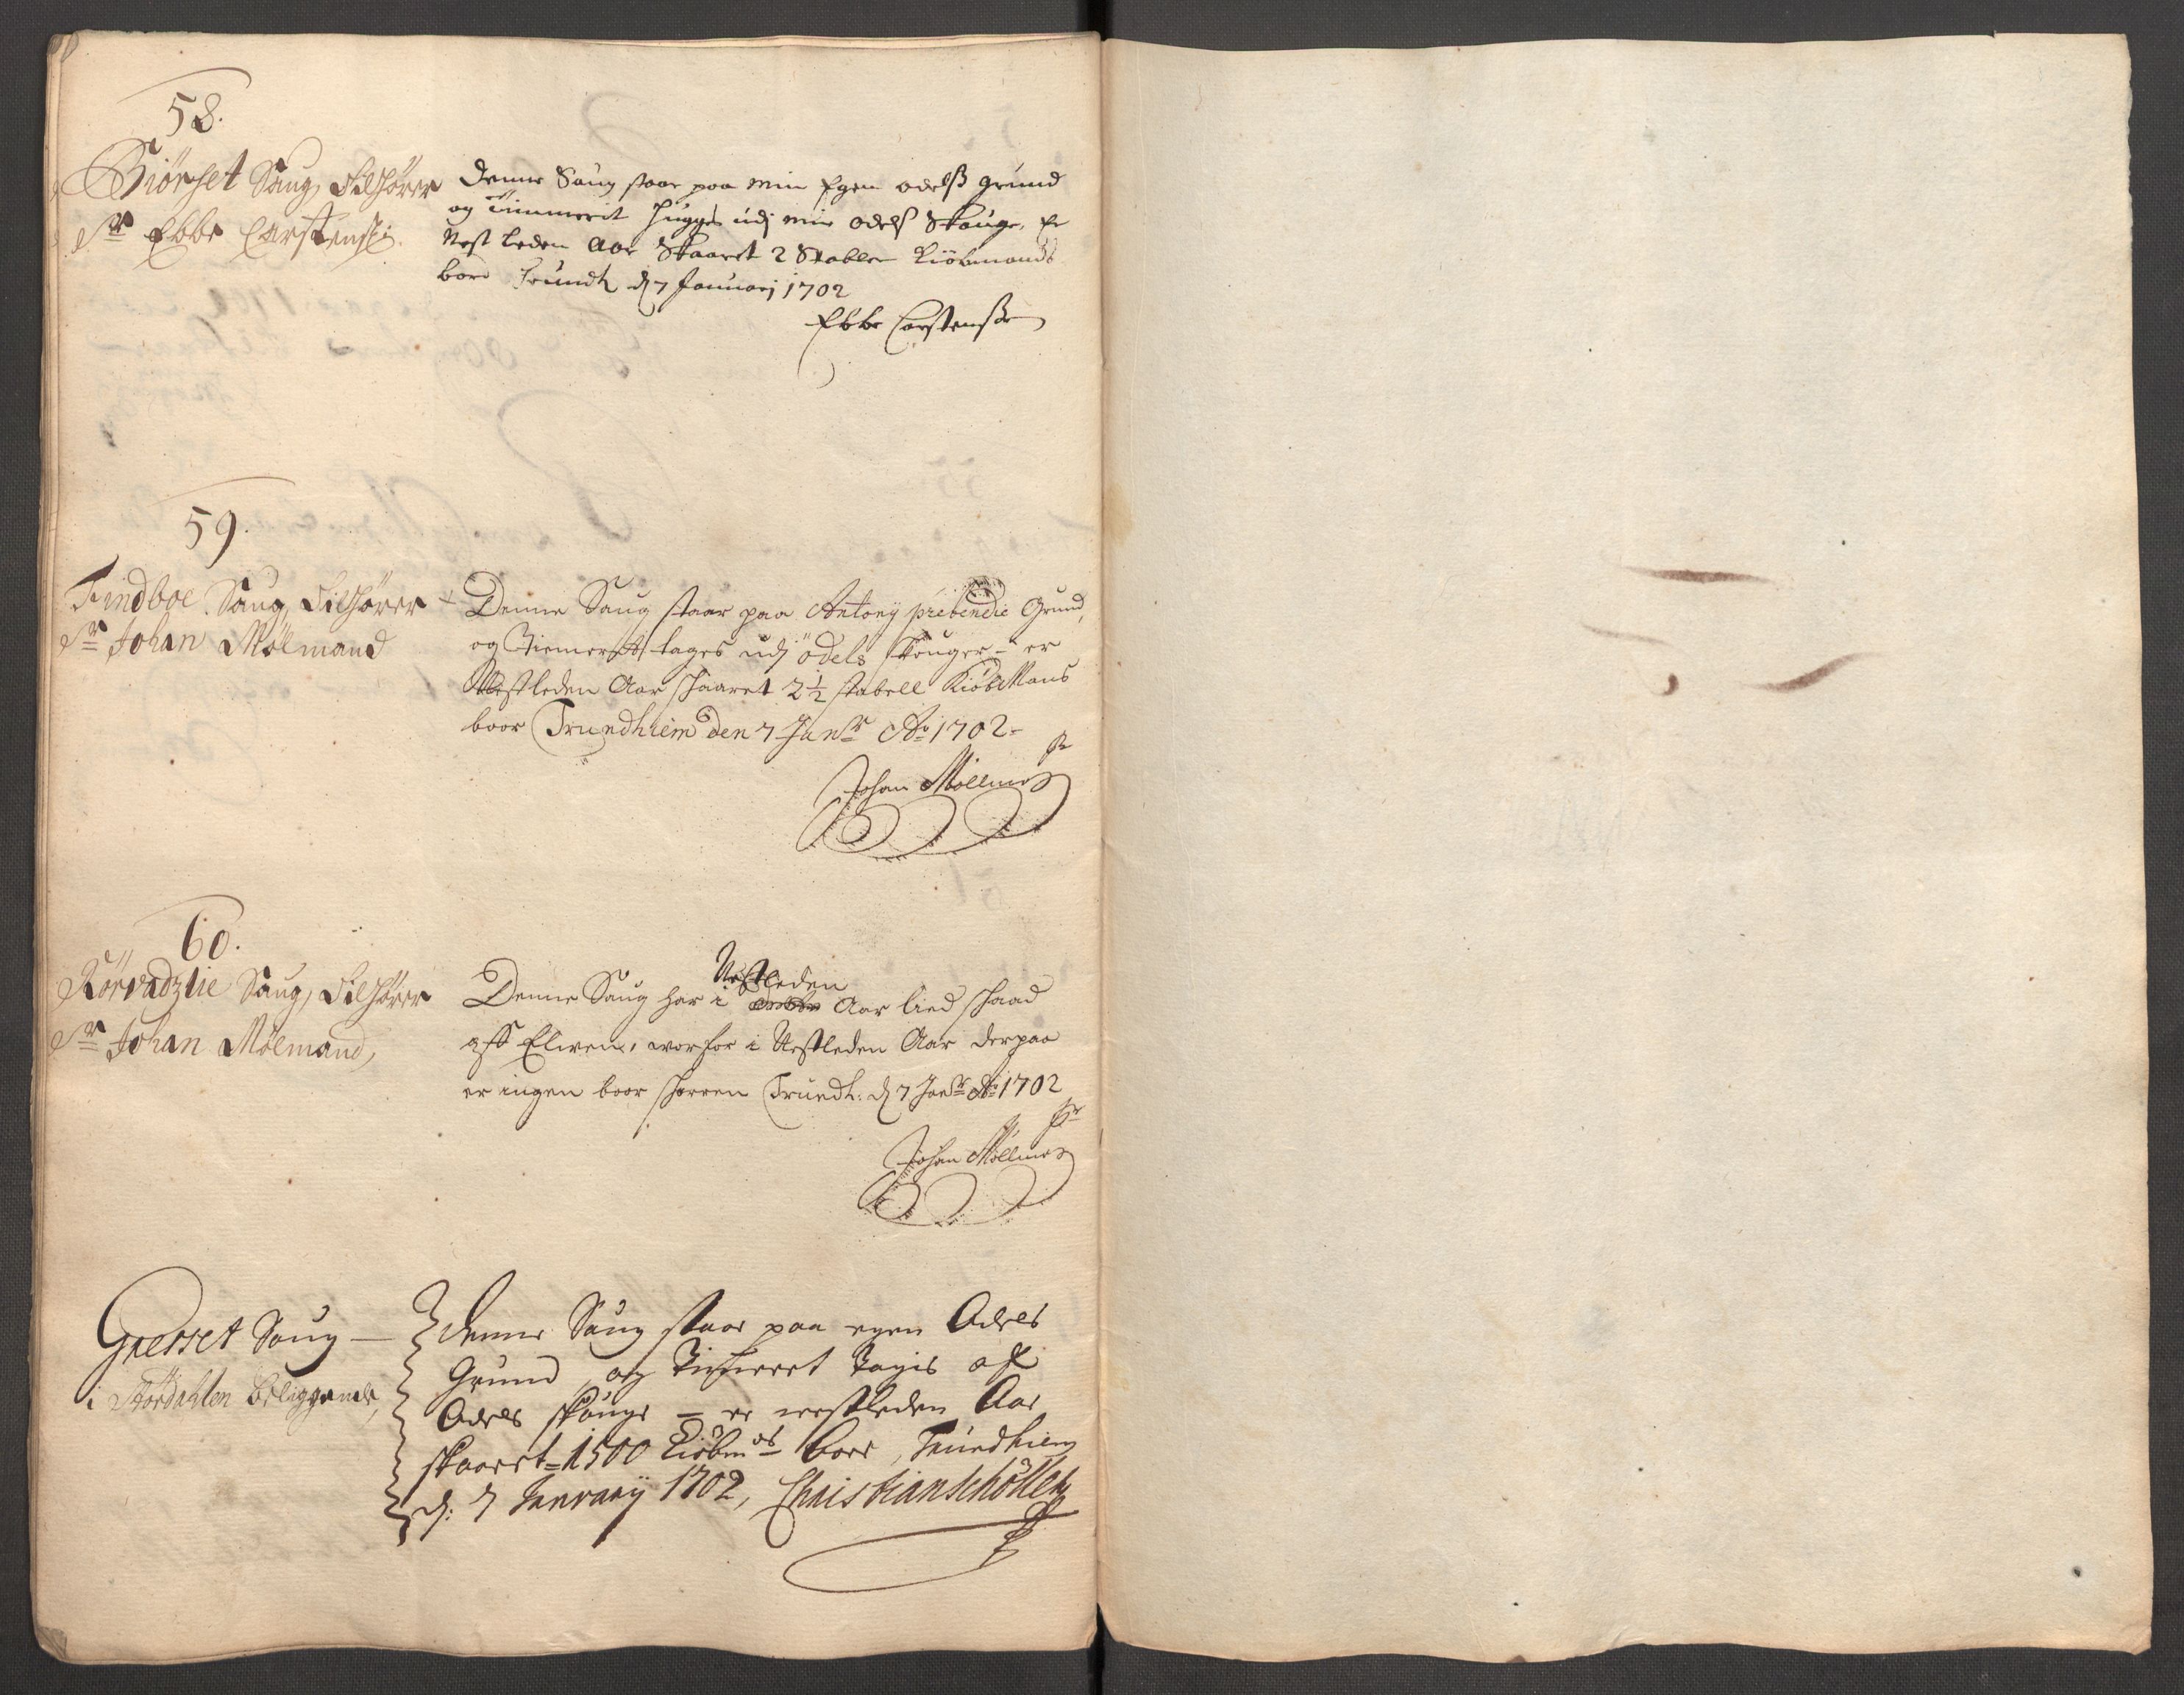 58.
Giørset Saug, Tilhører
Sr Ebbe Carstensen.
Denne Saug staar paa min Egen odelß grund
og Timmerit hugges udj min odelß Skouge, Er
Nest leden Aar Skaaret 2 Stabler Kiøbmands
bord Trundh d 7 Januarj 1702
Ebbe Carstenßen
59.
Findboe Saug, Tilhører
Sr Johan Mølmand
Denne Saug staar paa Antonÿ prebendie Grund,
og Timeret tages udj odels skouger - er
Nestleden Aar skaaret 2 1/2 stabell KiøbMans
boor Trundhiem den 7 Janr Ao 1702 -
Johan Møllman
60.
Sr Johan Mølmand,
Saug, Tilhører
Denne Saug har i Nestleden Aar lied skaad
aff Elwen, worfor i Nestleden Aar derpaa
er ingen boor skorren Trundh: d 7 Janr Ao 1702
Johan Møllman
Saug —
i Størdahlen beliggende,
Denne Saug staar paa egen Odels
Grund, og Timeret tagis af
Odels skouge — er nestleden Aar
skaaret = 1500 Kiøbmds bord, Trundhiem
d: 7 Januarÿ 1702, Christian Schøller